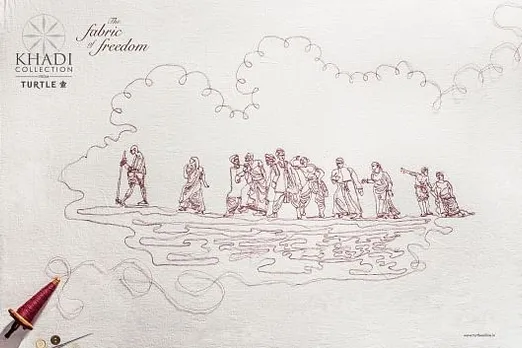 The
fabric
of freedom
KHADI
COLLECTION
FROM
TURTLE
www.turtleonline.in